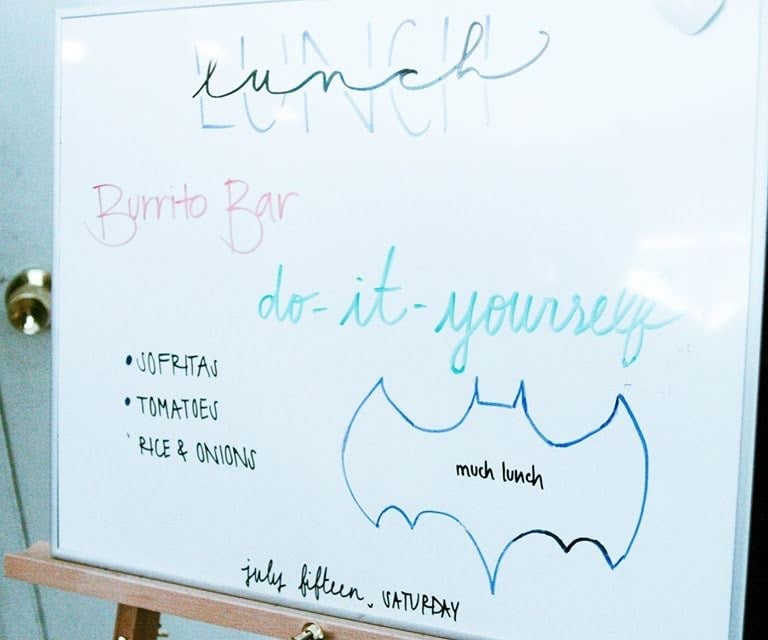 LUNCH
lunch
Burrito Bar
do-it-yourself
• SOFRITAS
• TOMATOES
RICE & ONIONS
much lunch
july fifteen, SATURDAY